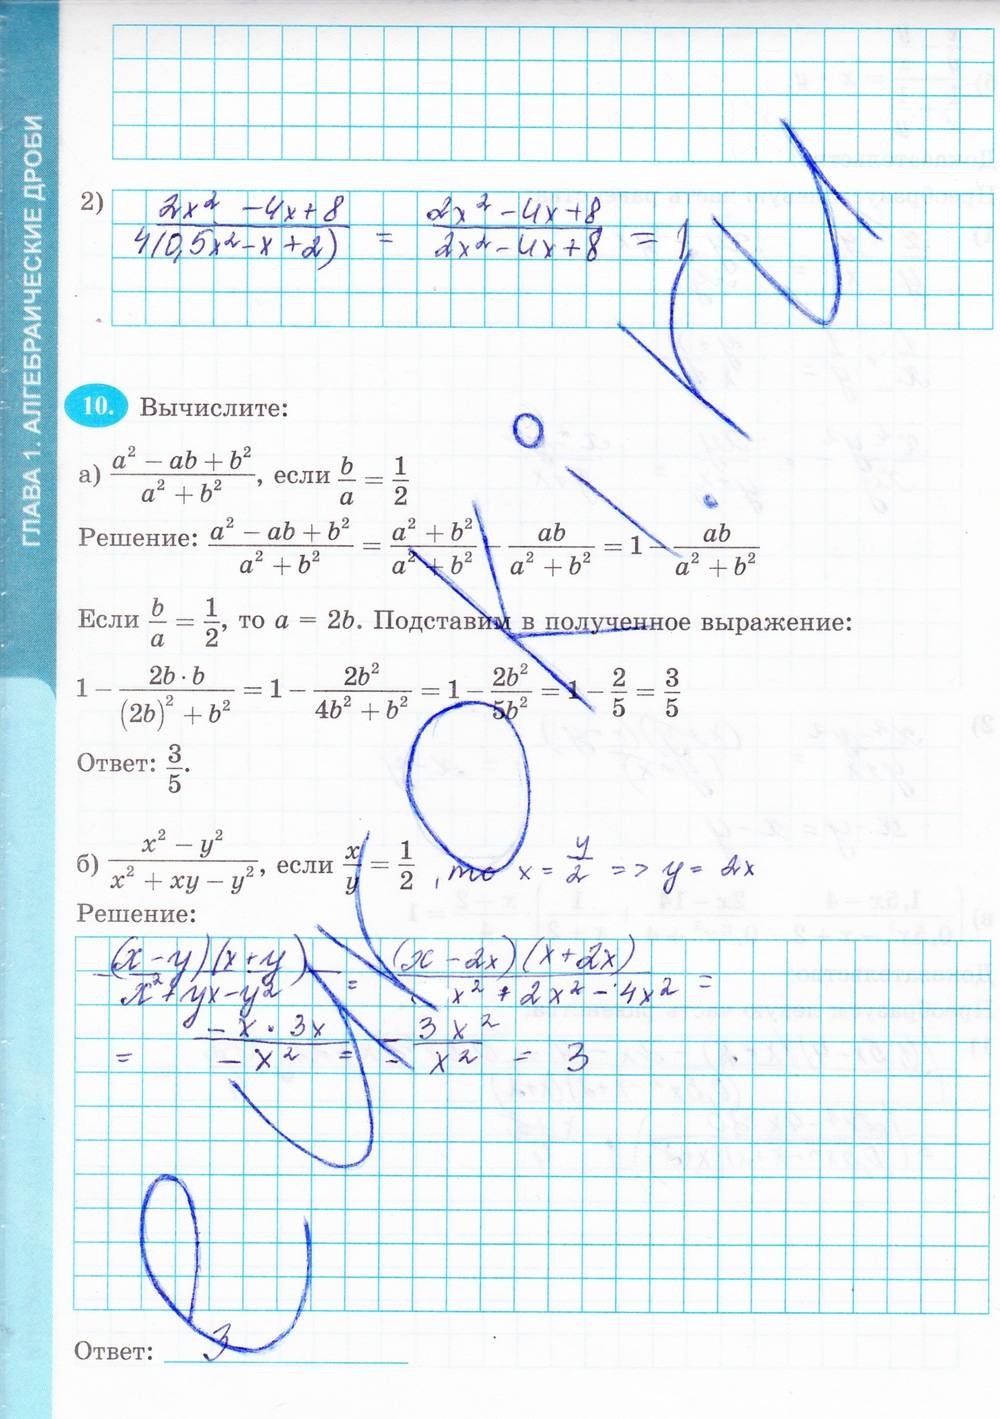 ГЛАВА 1. АЛГЕБРАИЧЕСКИЕ ДРОБИ
2) (2x² - 4x + 8)/(4(0,5x² - x + 2)) = (2x² - 4x + 8)/(2x² - 4x + 8) = 1
10. Вычислите:
а) (a² − ab + b²)/(a² + b²), если b/a = 1/2
Решение: (a² − ab + b²)/(a² + b²) = (a² + b²)/(a² + b²) − ab/(a² + b²) = 1 − ab/(a² + b²)
Если b/a = 1/2, то a = 2b. Подставим в полученное выражение:
1 − (2b · b)/((2b)² + b²) = 1 − 2b²/(4b² + b²) = 1 − 2b²/5b² = 1 − 2/5 = 3/5
Ответ: 3/5.
б) (x² − y²)/(x² + xy − y²), если x/y = 1/2, то x = y/2 => y = 2x
Решение:
(x − y)(x + y)/(x² + yx − y²) = (x − 2x)(x + 2x)/(x² + 2x² − 4x²) =
= (−x · 3x)/(−x²) = = 3x²/x² = 3
Ответ: 3
eyroki.ru